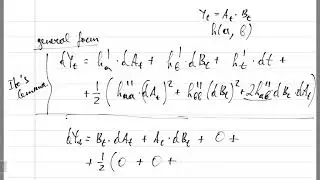 Yₜ = Aₜ · Bₜ
h(a, b)
general form
dYₜ = h'ₐ · dAₜ + h'_b · dBₜ + h'ₜ · dt +
+ 1/2 (h''ₐₐ (dAₜ)² + h''_bb (dBₜ)² + 2h''ₐ_b dBₜ dAₜ)
Ito's
lemma
dYₜ = Bₜ · dAₜ + Aₜ · dBₜ + 0 +
+ 1/2 (0 + 0 +